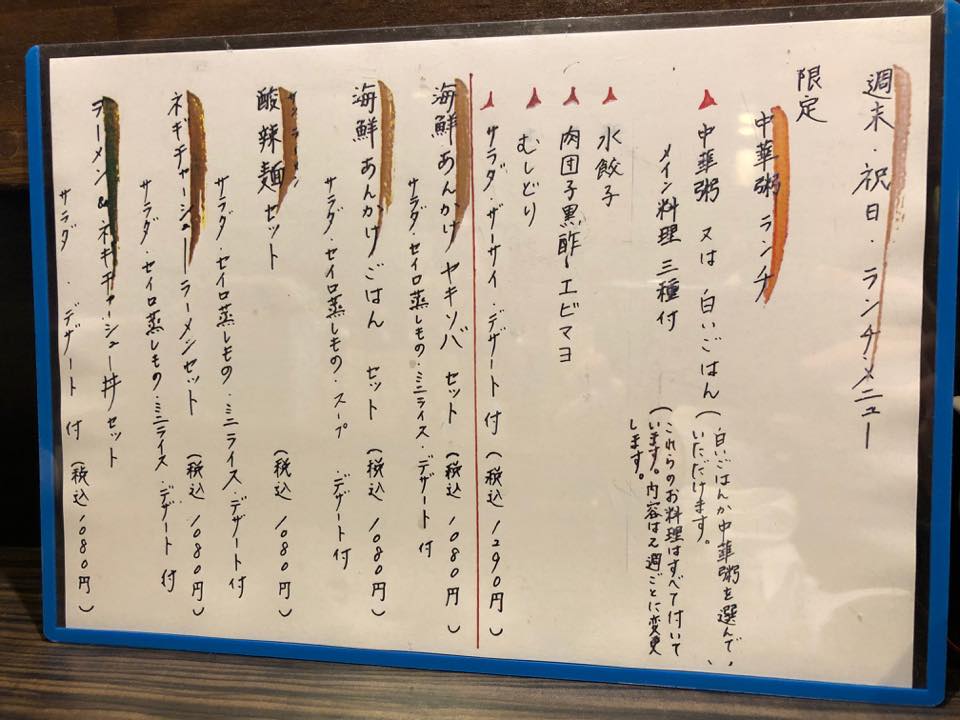 週末・祝日・ランチメニュー
限定
中華粥ランチ
中華粥 又は 白いごはん
(白いごはんか中華粥を選んで、
いただけます。)
メイン料理 三種付
(これらのお料理はすべて付いて
います。内容は2週ごとに変更
します。
水餃子
肉団子黒酢・エビマヨ
むしどり
サラダ・ザーサイ・デザート付(税込1290円)
海鮮あんかけヤキソバ セット(税込1080円)
サラダ・セイロ蒸しもの・ミニライス・デザート付
海鮮あんかけごはん セット(税込1080円)
サラダ・セイロ蒸しもの・スープ・デザート付
サンラーメン
酸辣麺セット(税込1080円)
サラダ・セイロ蒸しもの・ミニライス・デザート付
ネギチャーシューラーメンセット(税込1080円)
サラダ・セイロ蒸しもの・ミニライス・デザート付
ラーメン&ネギチャーシュー丼セット
サラダ・デザート付(税込1080円)